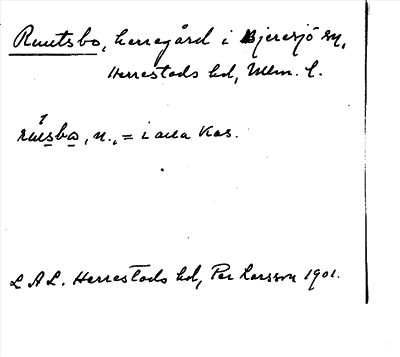 Ruutsbo, herregård i Bjeresjö sn,
Herrestads hd, Mlm. l.
rusbo, n., = i alla kas.
LAL. Herrestads hd, Per Larsson 1901.